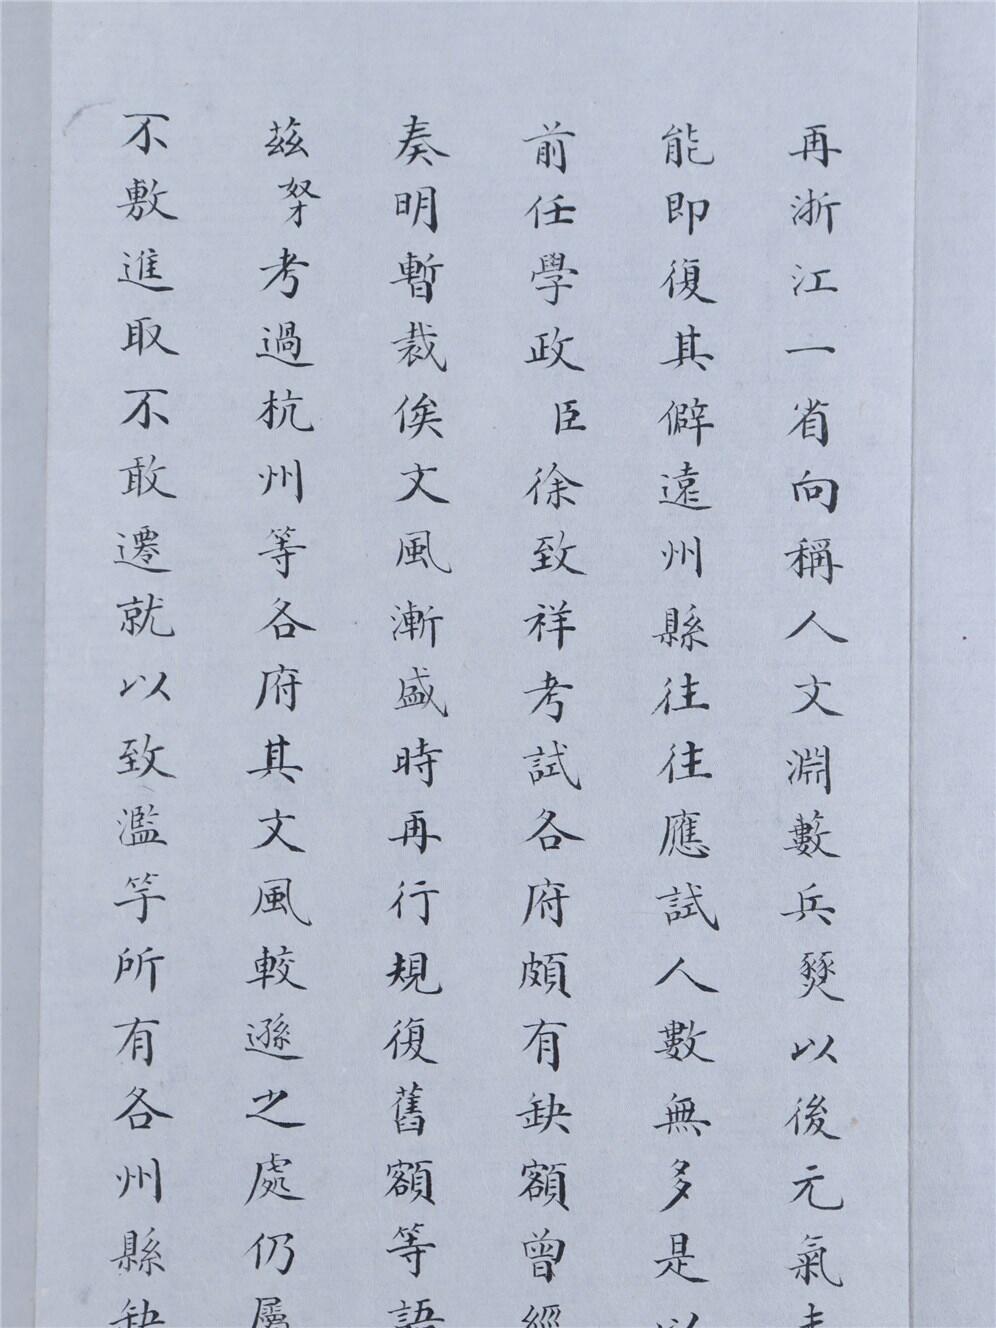 再浙江一省向稱人文淵藪兵燹以後元氣未
能即復其僻遠州縣往往應試人數無多是以
前任學政臣徐致祥考試各府頗有缺額曾經
奏明暫裁俟文風漸盛時再行規復舊額等語
茲奴才考過杭州等各府其文風較遜之處仍屬
不敷進取不敢遷就以致濫竽所有各州縣缺